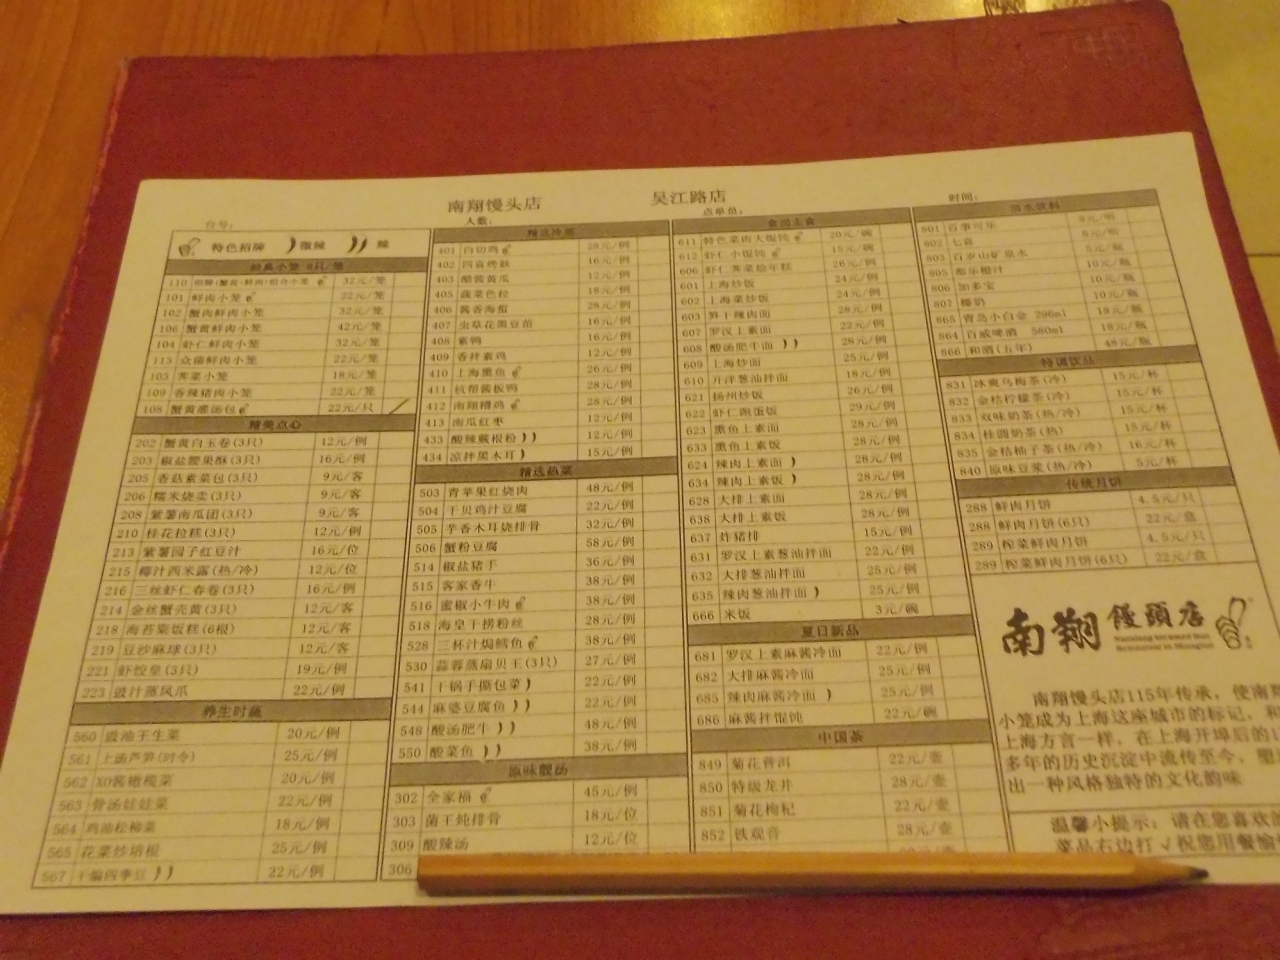 南翔馒头店 吴江路店
台号: 人数: 点单员: 时间:
特色招牌 微辣 辣
经典小笼 8只/笼
110 招牌(蟹黄·鲜肉)组合小笼 32元/笼
101 鲜肉小笼 22元/笼
102 蟹肉鲜肉小笼 32元/笼
106 蟹黄鲜肉小笼 42元/笼
104 虾仁鲜肉小笼 32元/笼
113 众菌鲜肉小笼 22元/笼
103 荠菜小笼 18元/笼
109 香辣猪肉小笼 22元/笼
108 蟹黄灌汤包 22元/只
精美点心
202 蟹黄白玉卷(3只) 12元/例
203 椒盐腰果酥(3只) 16元/例
205 香菇素菜包(3只) 9元/客
206 糯米烧卖(3只) 9元/客
208 紫薯南瓜团(3只) 9元/客
210 桂花拉糕(3只) 12元/例
213 紫薯园子红豆汁 16元/位
215 椰汁西米露(热/冷) 12元/位
216 三丝虾仁春卷(3只) 16元/例
214 金丝蟹壳黄(3只) 12元/客
218 海苔粢饭糕(6根) 12元/客
219 豆沙麻球(3只) 12元/客
221 虾饺皇(3只) 19元/例
223 豉汁蒸凤爪 22元/例
养生时蔬
560 豉油王生菜 20元/例
561 上汤芦笋(时令) 25元/例
562 XO酱橄榄菜 20元/例
563 骨汤娃娃菜 22元/例
564 鸡油松柳菜 18元/例
565 花菜炒培根 25元/例
567 干煸四季豆 22元/例
精选冷菜
401 白切鸡 28元/例
402 四喜烤麸 16元/例
403 醋酱黄瓜 12元/例
405 蔬菜色拉 18元/例
406 酱香海蜇 28元/例
407 虫草花黑豆苗 16元/例
408 素鸭 16元/例
409 香拌素鸡 12元/例
410 上海熏鱼 26元/例
411 杭帮酱板鸭 28元/例
412 南翔糟鸡 28元/例
413 南瓜红枣 12元/例
433 酸辣蕨根粉 12元/例
434 凉拌黑木耳 15元/例
精选热菜
503 青苹果红烧肉 48元/例
504 干贝鸡汁豆腐 22元/例
505 芋香木耳烧排骨 32元/例
506 蟹粉豆腐 58元/例
514 椒盐猪手 36元/例
515 客家香牛 38元/例
516 蜜椒小牛肉 38元/例
518 海皇干捞粉丝 28元/例
528 三杯汁焗鳕鱼 38元/例
530 蒜蓉蒸扇贝王(3只) 27元/例
541 干锅手撕包菜 22元/例
544 麻婆豆腐鱼 22元/例
548 酸汤肥牛 48元/例
550 酸菜鱼 38元/例
原味靓汤
302 全家福 45元/例
303 菌王炖排骨 18元/位
309 酸辣汤 12元/位
306
611 特色菜肉大馄饨 20元/碗
612 虾仁小馄饨 15元/碗
606 虾仁荠菜烩年糕 26元/例
601 上海炒饭 24元/例
602 上海菜炒饭 24元/例
603 笋干辣肉面 28元/例
607 罗汉上素面 22元/例
608 酸汤肥牛面 28元/例
609 上海炒面 25元/例
610 开洋葱油拌面 18元/例
621 扬州炒饭 26元/例
622 虾仁跑蛋饭 29元/例
623 熏鱼上素面 28元/例
633 熏鱼上素饭 28元/例
624 辣肉上素面 28元/例
634 辣肉上素饭 28元/例
628 大排上素面 28元/例
638 大排上素饭 28元/例
637 炸猪排 15元/例
631 罗汉上素葱油拌面 22元/例
632 大排葱油拌面 25元/例
635 辣肉葱油拌面 25元/例
666 米饭 3元/碗
夏日新品
681 罗汉上素麻酱冷面 22元/例
682 大排麻酱冷面 25元/例
685 辣肉麻酱冷面 25元/例
686 麻酱拌馄饨 22元/碗
中国茶
849 菊花普洱 22元/壶
850 特级龙井 28元/壶
851 菊花枸杞 22元/壶
852 铁观音 28元/壶
酒水饮料
801 百事可乐 8元/听
802 七喜 8元/听
803 百岁山矿泉水 5元/瓶
805 都乐橙汁 10元/瓶
806 加多宝 10元/瓶
807 椰奶 10元/瓶
865 青岛小白金 296ml 18元/瓶
864 百威啤酒 580ml 18元/瓶
866 和酒(五年) 48元/瓶
特调饮品
831 冰爽乌梅茶(冷) 15元/杯
832 金桔柠檬茶(冷) 15元/杯
833 双味奶茶(热/冷) 15元/杯
834 桂圆奶茶(热) 15元/杯
835 金桔柚子茶(热/冷) 16元/杯
840 原味豆浆(热/冷) 5元/杯
传统月饼
288 鲜肉月饼 4.5元/只
288 鲜肉月饼(6只) 22元/盒
289 榨菜鲜肉月饼 4.5元/只
289 榨菜鲜肉月饼(6只) 22元/盒
南翔 馒頭店
南翔馒头店115年传承，使南
小笼成为上海这座城市的标记，和
上海方言一样，在上海开埠后的
多年的历史沉淀中流传至今，塑
出一种风格独特的文化韵味
温馨小提示：请在您喜欢
菜品右边打√祝您用餐愉